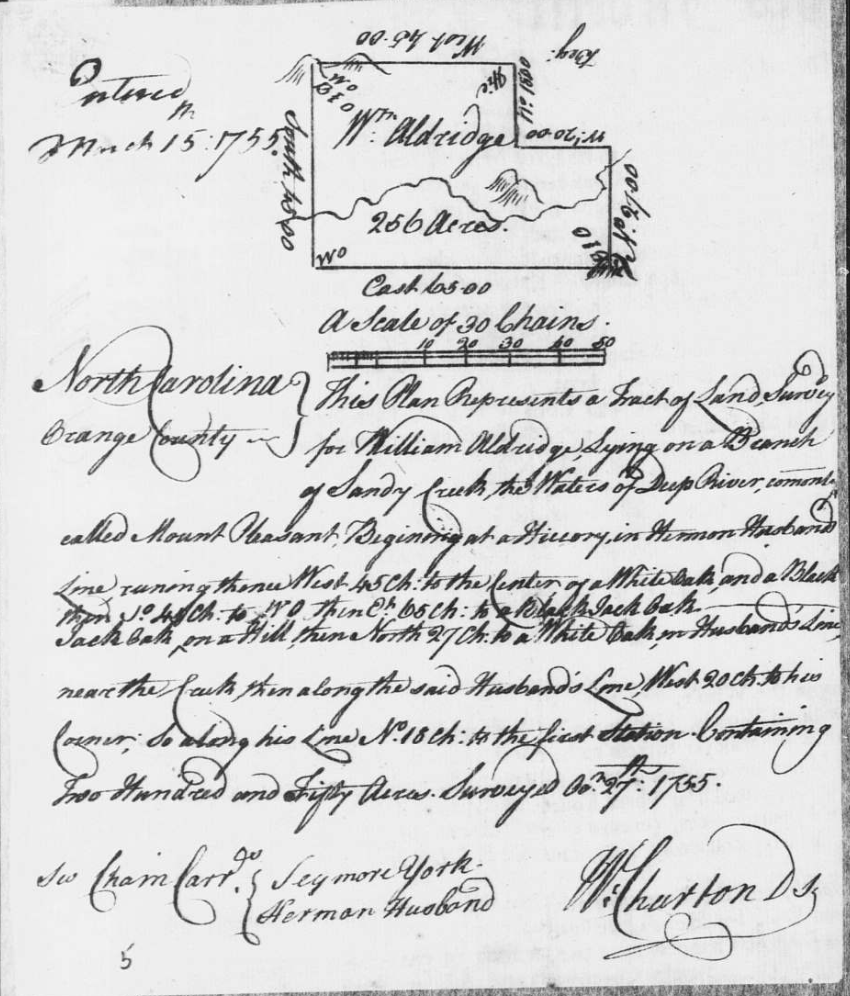 Entered
March 15th: 1755
West 45.00
Beg:
Hic
No 18.00
W: 20.00
No 27.00
South 45.00
WO
B I O
Wm. Aldridge
256 Acres.
WO
B I O
East 65.00
A Scale of 30 Chains.
10 20 30 40 50
North Carolina } This Plan Represents a Tract of Land Survey'd
Orange County for William Aldridge Lying on a Branch
of Sandy Creek, the Waters of Deep River, comonl
called Mount Pleasant, Begining at a Hiccory, in Hermon Husbands
Line, runing thence West 45 Ch: to the Center of a White Oak, and a Black
then So. 45 Ch: to WO then Et. 65 Ch: to a Black Jack Oak
Jack Oak, on a Hill, then North 27 Ch: to a White Oak, in Husband's Line,
near the Creek, then along the said Husband's Line, West 20 Ch: to his
Corner; So along his Line No. 18 Ch: to the first Station Containing
Two Hundred and Fifty Acres. Surveyed 27th: 1755.
Chain Carrs. { Seymore York.
Herman Husband
W: Churton D S
5